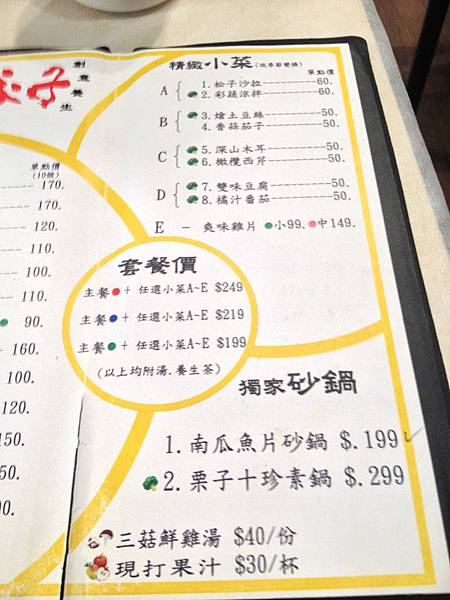 創意養生
單點價
(10個)
170.
170.
120.
110.
100.
110.
90.
160.
100.
120.
150.
50.
90.
精緻小菜(依季節變換)
單點價
A
1.松子沙拉 60.
2.彩蔬涼拌 60.
B
3.熗土豆絲 50.
4.香蒜茄子 50.
C
5.深山木耳 50.
6.橄欖西芹 50.
D
7.雙味豆腐 50.
8.橘汁番茄 50.
E - 爽味雞片 小99. 中149.
套餐價
主餐●+ 任選小菜A~E $249
主餐●+ 任選小菜A~E $219
主餐●+ 任選小菜A~E $199
(以上均附湯.養生茶)
獨家砂鍋
1.南瓜魚片砂鍋 $.199
2.栗子十珍素鍋 $.299
三菇鮮雞湯 $40/份
現打果汁 $30/杯